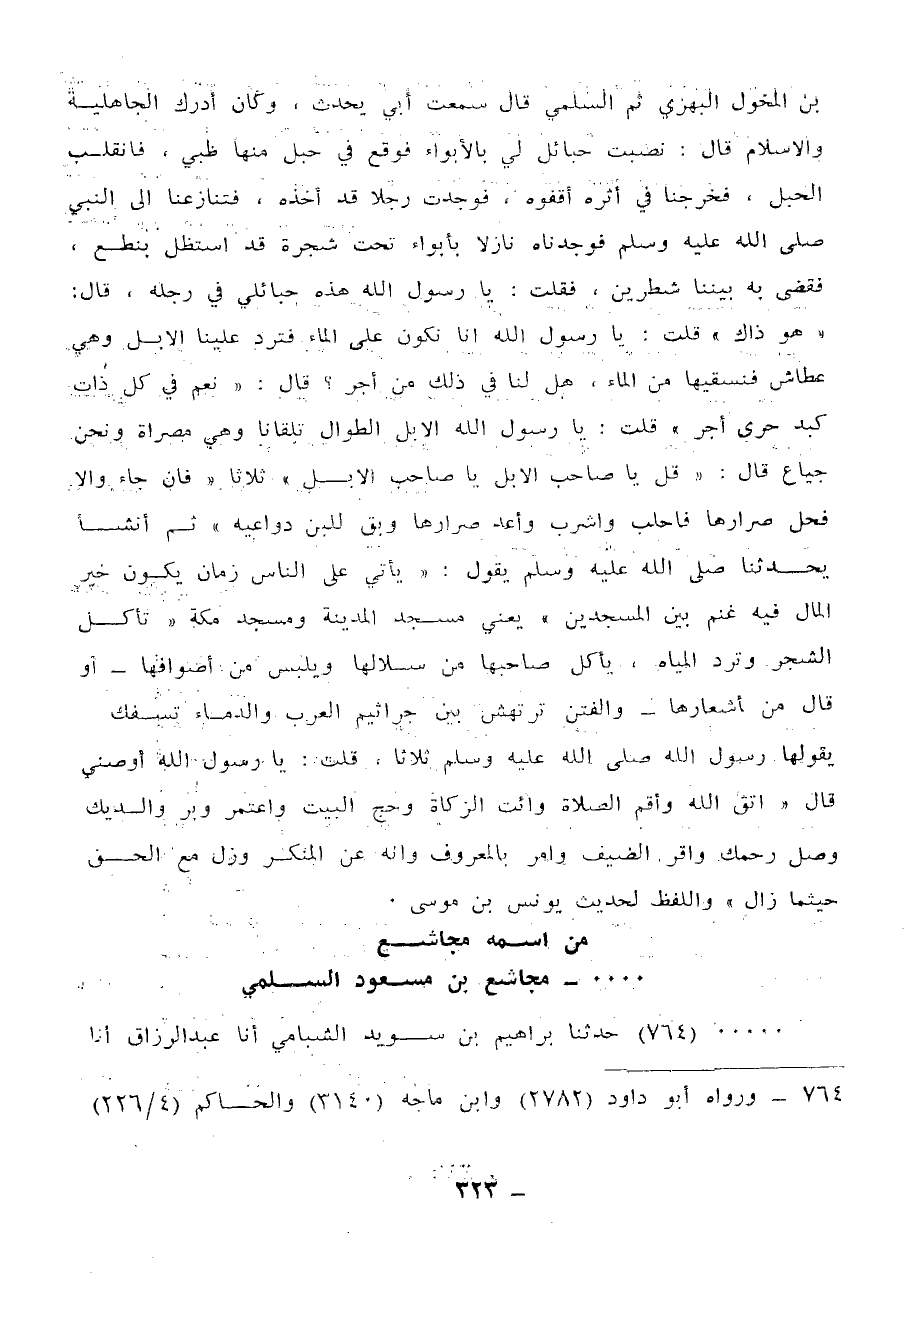 بن المخول البهزي ثم السلمي قال سمعت أبي يحدث ، وكان أدرك الجاهلية
والاسلام قال : نصبت حبائل لي بالأبواء فوقع في حبل منها ظبي ، فانقلب
الحبل ، فخرجنا في أثره أقفوه ، فوجدت رجلا قد أخذه ، فتنازعنا الى النبي
صلى الله عليه وسلم فوجدناه نازلا بأبواء تحت شجرة قد استظل بنطع ،
فقضى به بيننا شطرين ، فقلت : يا رسول الله هذه حبائلي في رجله ، قال:
« هو ذاك » قلت : يا رسول الله انا نكون على الماء فترد علينا الابل وهي
عطاش فنسقيها من الماء ، هل لنا في ذلك من أجر ؟ قال : « نعم في كل ذات
كبد حرى أجر » قلت : يا رسول الله الابل الطوال تلقانا وهي مصراة ونحن
جياع قال : « قل يا صاحب الابل يا صاحب الابل » ثلاثا « فان جاء والا
فحل صرارها فاحلب واشرب وأعد صرارها وبق للبن دواعيه » ثم أنشأ
يحدثنا صلى الله عليه وسلم يقول : « يأتي على الناس زمان يكون خير
المال فيه غنم بين المسجدين » يعني مسجد المدينة ومسجد مكة « تأكل
الشجر وترد المياه ، يأكل صاحبها من سلالها ويلبس من أصوافها ــ أو
قال من أشعارها ــ والفتن ترتهش بين جراثيم العرب والدماء تسفك
يقولها رسول الله صلى الله عليه وسلم ثلاثا ، قلت : يا رسول الله أوصني
قال « اتق الله وأقم الصلاة وائت الزكاة وحج البيت واعتمر وبر والديك
وصل رحمك واقر الضيف وامر بالمعروف وانه عن المنكر وزل مع الحق
حيثما زال » واللفظ لحديث يونس بن موسى ٠
من اسمه مجاشع
٠٠٠٠ ــ مجاشع بن مسعود السلمي
٠٠٠٠٠ (٧٦٤) حدثنا براهيم بن سويد الشبامي أنا عبدالرزاق أنا
٧٦٤ ــ ورواه أبو داود (٢٧٨٢) وابن ماجه (٣١٤٠) والحاكم (٢٢٦/٤)
ــ ٣٢٣